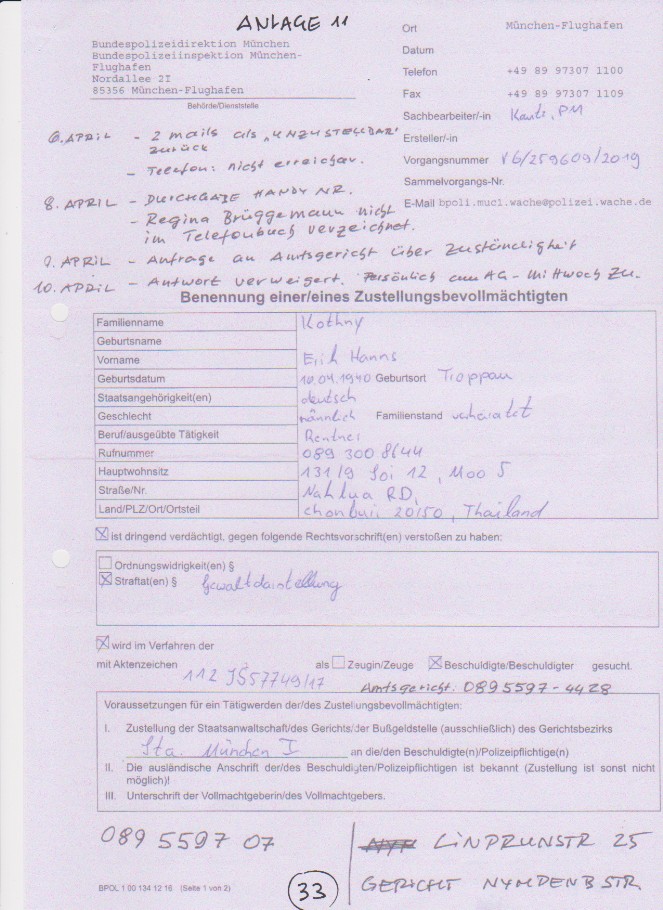 ANLAGE 11
Bundespolizeidirektion München
Bundespolizeiinspektion München-
Flughafen
Nordallee 2I
85356 München-Flughafen
Behörde/Dienststelle
Ort München-Flughafen
Datum
Telefon +49 89 97307 1100
Fax +49 89 97307 1109
Sachbearbeiter/-in Kautz, PM
Ersteller/-in
Vorgangsnummer V6/259609/2019
Sammelvorgangs-Nr.
E-Mail bpoli.muc1.wache@polizei.wache.de
6. APRIL - 2 mails als „UNZUSTELLBAR"
zurück
- Telefon: nicht erreichbar.
8. APRIL - DURCHGABE HANDY NR.
- Regina Brüggemann nicht
im Telefonbuch verzeichnet.
9. APRIL - Anfrage an Amtsgericht über Zuständigkeit
10. APRIL - Antwort verweigert. Persönlich zum AG - Mittwoch zu.
Benennung einer/eines Zustellungsbevollmächtigten
Familienname Kothny
Geburtsname
Vorname Erich Hanns
Geburtsdatum 10.04.1940 Geburtsort Troppau
Staatsangehörigkeit(en) deutsch
Geschlecht männlich Familienstand verheiratet
Beruf/ausgeübte Tätigkeit Rentner
Rufnummer 089 300 8644
Hauptwohnsitz 131/9 Soi 12, Moo 5
Straße/Nr. Nahlua RD,
Land/PLZ/Ort/Ortsteil Chonburi 20150, Thailand
ist dringend verdächtigt, gegen folgende Rechtsvorschrift(en) verstoßen zu haben:
Ordnungswidrigkeit(en) §
Straftat(en) § Gewaltdarstellung
wird im Verfahren der
mit Aktenzeichen 112 JS57749/17 als Zeugin/Zeuge Beschuldigte/Beschuldigter gesucht.
Amtsgericht. 089 5597-4428
Voraussetzungen für ein Tätigwerden der/des Zustellungsbevollmächtigten:
I. Zustellung der Staatsanwaltschaft/des Gerichts/der Bußgeldstelle (ausschließlich) des Gerichtsbezirks
Sta. München I an die/den Beschuldigte(n)/Polizeipflichtige(n)
II. Die ausländische Anschrift der/des Beschuldigten/Polizeipflichtigen ist bekannt (Zustellung ist sonst nicht
möglich)!
III. Unterschrift der Vollmachtgeberin/des Vollmachtgebers.
089 5597 07
LINPRUNSTR 25
GERICHT NYMPENBSTR.
BPOL 1 00 134 12 16 (Seite 1 von 2)
33